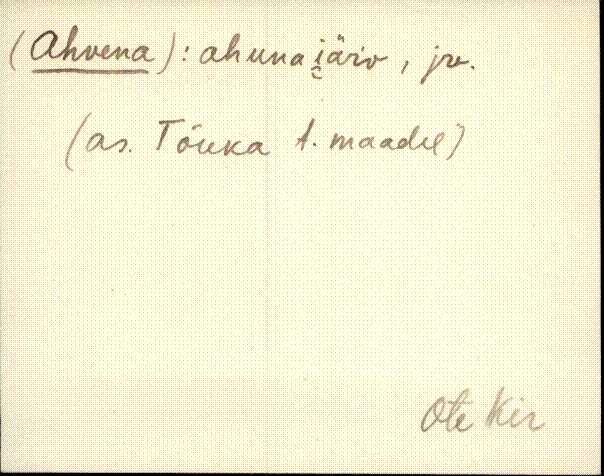 (Ahvena): ahuna i̯äriv, jrv.
(as. Tõuka t. maadel)
Ote Kir